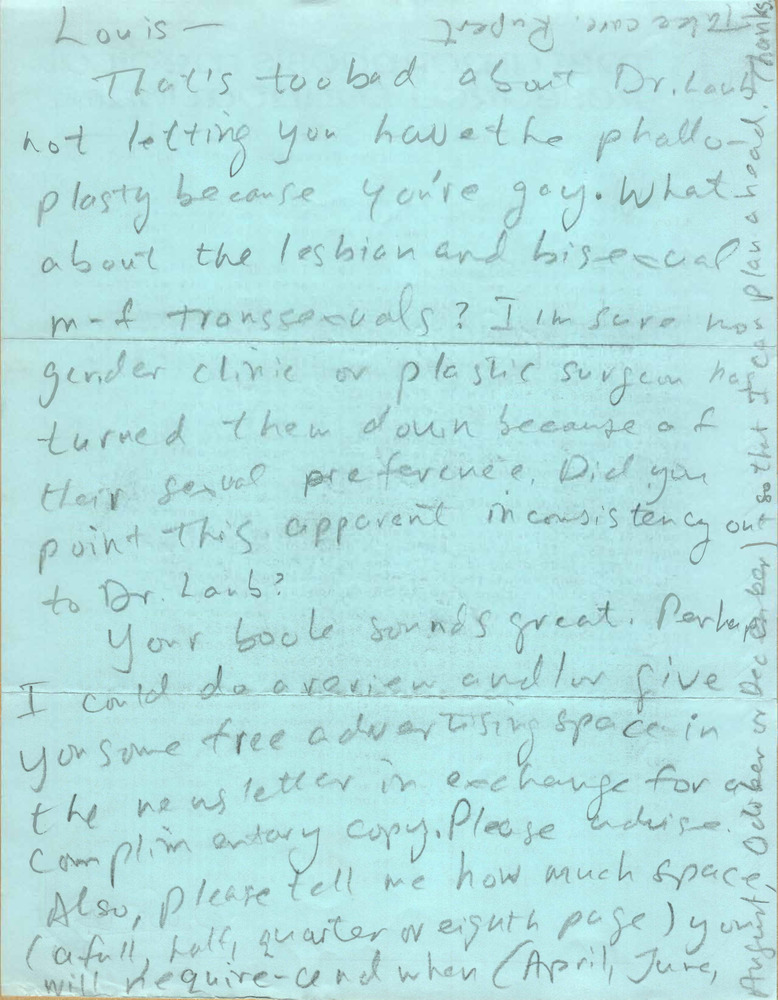 Louis —
That's too bad about Dr. Laub
not letting you have the phallo-
plasty because you're gay. What
about the lesbian and bisexual
m-f transsexuals? I'm sure no
gender clinic or plastic surgeon has
turned them down because of
their sexual preference. Did you
point this apparent inconsistency out
to Dr. Laub?
Your book sounds great. Perhaps
I could do a review and/or give
you some free advertising space in
the newsletter in exchange for a
complimentary copy. Please advise.
Also, please tell me how much space
(a full, half, quarter or eighth page) you
will require - and when (April, June,
August, October or December) - so that I can plan ahead. Thanks.
Take care. Rupert